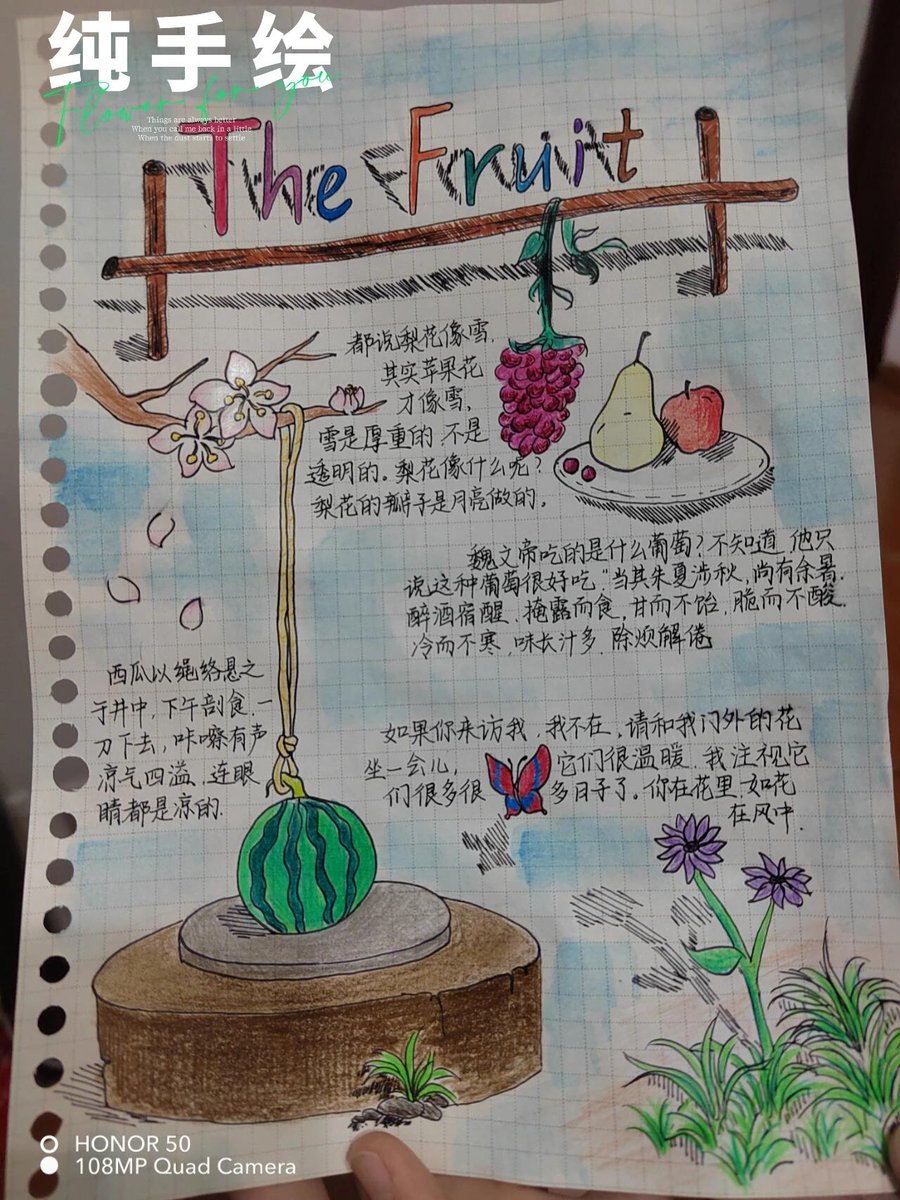 纯手绘
Flower for you
Things are always better
When you call me back in a little
When the dust starts to settle
The Fruit
都说梨花像雪,
其实苹果花
才像雪,
雪是厚重的 不是
透明的。梨花像什么呢?
梨花的瓣子是月亮做的。
魏文帝吃的是什么葡萄?不知道,他只
说这种葡萄很好吃"当其朱夏涉秋,尚有余暑,
醉酒宿醒、掩露而食,甘而不饴、脆而不酸,
冷而不寒,味长汁多、除烦解倦
西瓜以绳络悬之
于井中,下午剖食,一
刀下去,咔嚓有声
凉气四溢,连眼
睛都是凉的.
如果你来访我,我不在,请和我门外的花
坐一会儿, 它们很温暖,我注视它
们很多很 多日子了。你在花里,如花
在风中.
HONOR 50
108MP Quad Camera